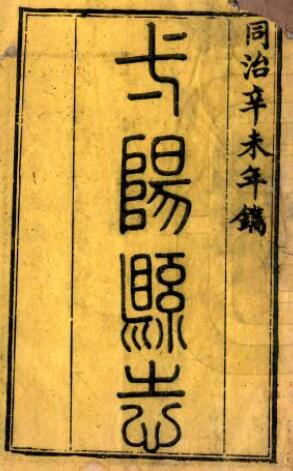 同治辛未年鐫
弋陽縣志